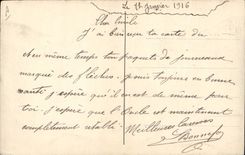 Le 14 Janvier 1916
Cher Emile
J'ai bien reçu ta carte du
en même temps ton paquets de journeaux
marqué des flèches. je suis toujours en bonne
santé j'espère qu'il en est de même pour
toi. j'espère que l'Oncle est maintenant
complètement rétabli. Meilleures Caresses